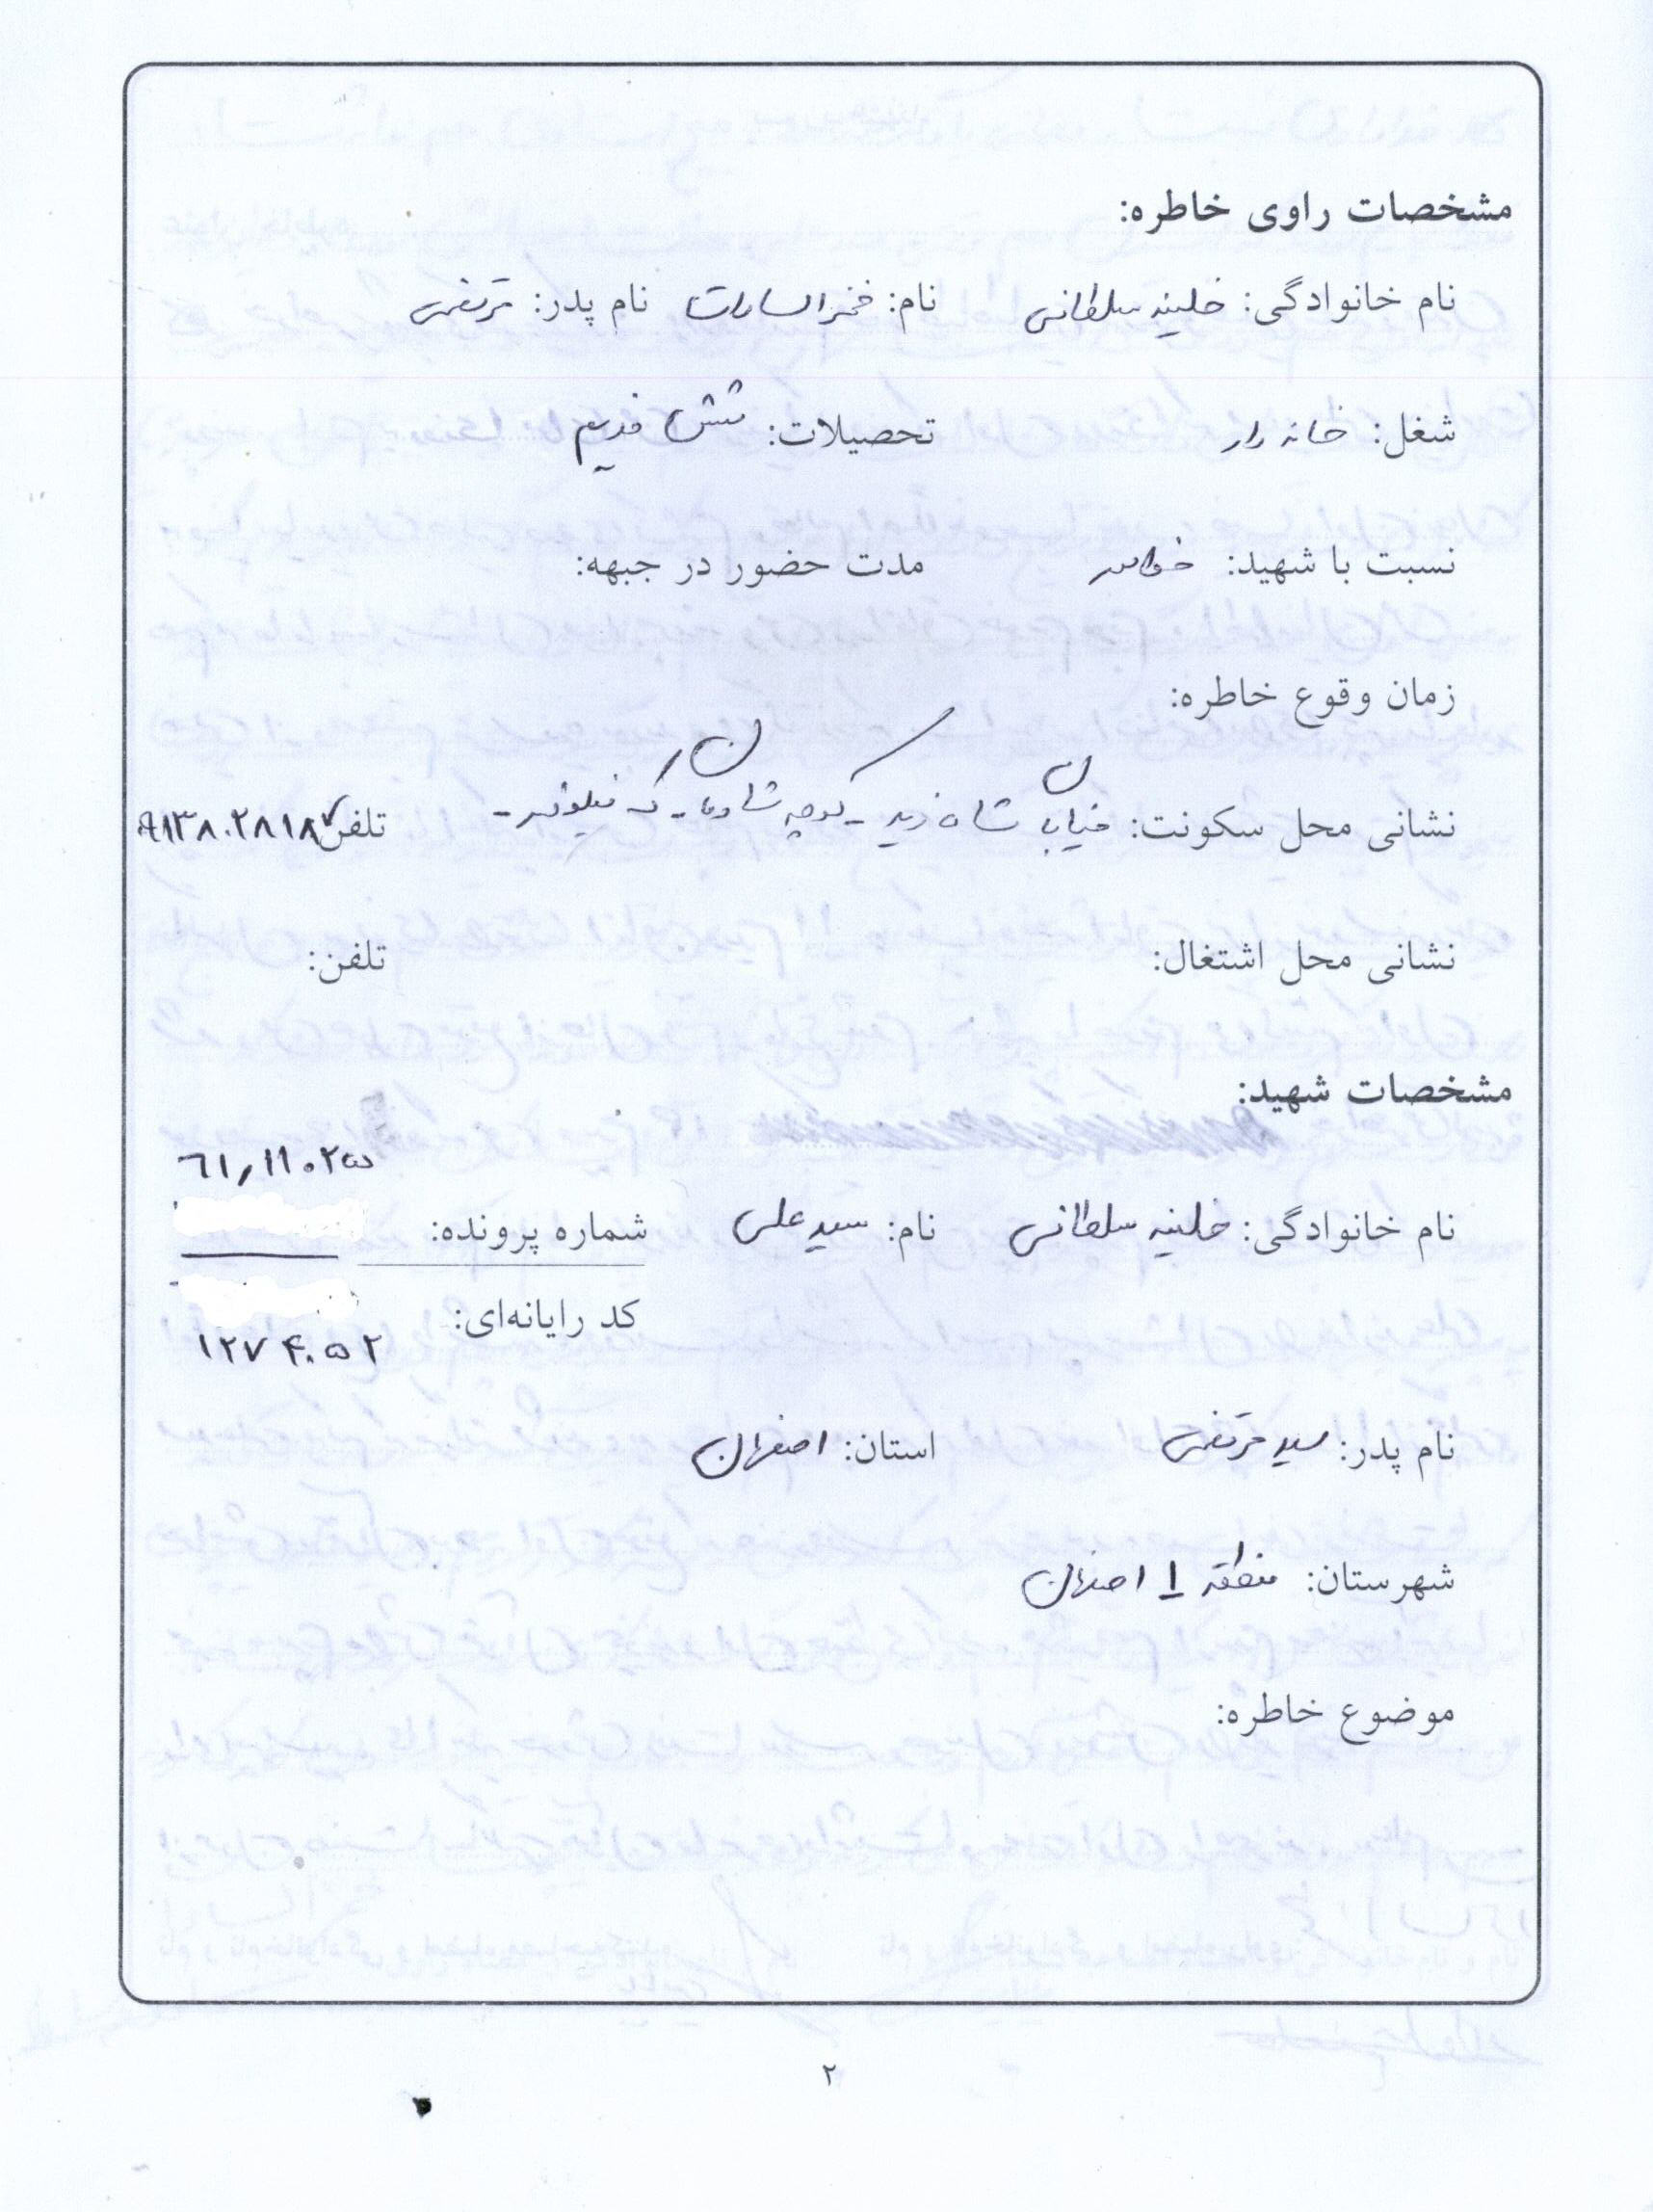 مشخصات راوی خاطره:
نام خانوادگی: خلیفه سلطانی نام: فخرالسادات نام پدر: مرتضی
شغل: خانه دار تحصیلات: شش قدیم
نسبت با شهید: خواهر مدت حضور در جبهه:
زمان وقوع خاطره:
نشانی محل سکونت: خیابان شاه زید - کوچه شادمان - ک نیلوفر - تلفن ۹۱۳۸۰۲۸۱۸۷
نشانی محل اشتغال: تلفن:
مشخصات شهید:
۶۱,۱۱۰۲۵
نام خانوادگی: خلیفه سلطانی نام: سید علی شماره پرونده:
کد رایانه‌ای:
۱۲۷۴۰۵۲
نام پدر: سید مرتضی استان: اصفهان
شهرستان: منطقه ۱ اصفهان
موضوع خاطره:
۲